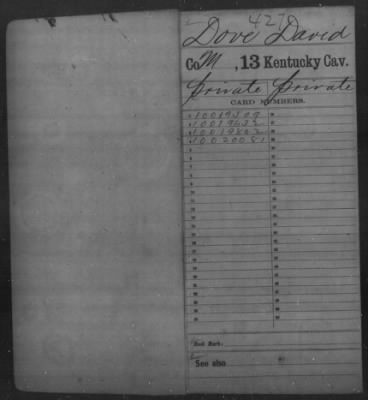 427
Dove David
Co M, 13 Kentucky Cav.
Private Private
CARD NUMBERS.
10019509
10019632
10019802
10020081
Book Mark:
See also